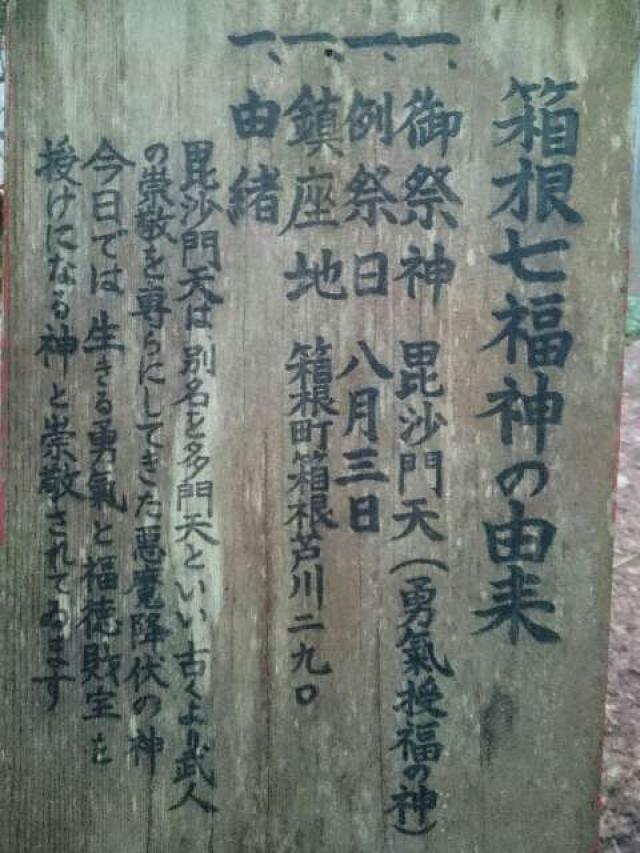 箱根七福神の由来
一、御祭神 毘沙門天(勇氣授福の神)
一、例祭日 八月三日
一、鎮座地 箱根町箱根芦川二九〇
一、由緒
毘沙門天は、別名を多門天といい 古くより武人
の崇敬を専らにしてきた悪魔降伏の神
今日では 生きる勇氣と福徳財宝を
授けになる神と崇敬されてゐます